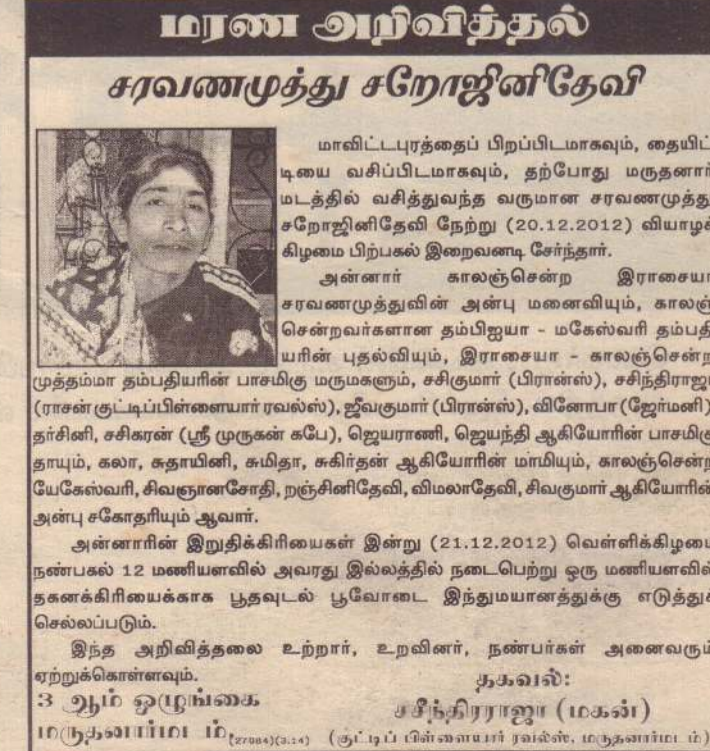 மரண அறிவித்தல்
சரவணமுத்து சறோஜினிதேவி
மாவிட்டபுரத்தைப் பிறப்பிடமாகவும், தையிட்
டியை வசிப்பிடமாகவும், தற்போது மருதனார்
மடத்தில் வசித்துவந்த வருமான சரவணமுத்து
சறோஜினிதேவி நேற்று (20.12.2012) வியாழக்
கிழமை பிற்பகல் இறைவனடி சேர்ந்தார்.
அன்னார் காலஞ்சென்ற இராசையா
சரவணமுத்துவின் அன்பு மனைவியும், காலஞ்
சென்றவர்களான தம்பிஐயா - மகேஸ்வரி தம்பதி
யரின் புதல்வியும், இராசையா - காலஞ்சென்ற
முத்தம்மா தம்பதியரின் பாசமிகு மருமகளும், சசிகுமார் (பிரான்ஸ்), சசிந்திராஜா
(ராசன் குட்டிப்பிள்ளையார் ரவல்ஸ்), ஜீவகுமார் (பிரான்ஸ்), வினோபா (ஜேர்மனி)
தர்சினி, சசிகரன் (ஸ்ரீ முருகன் கபே), ஜெயராணி, ஜெயந்தி ஆகியோரின் பாசமிகு
தாயும், கலா, சுதாயினி, சுமிதா, சுகிர்தன் ஆகியோரின் மாமியும், காலஞ்சென்ற
யேகேஸ்வரி, சிவஞானசோதி, றஞ்சினிதேவி, விமலாதேவி, சிவகுமார் ஆகியோரின்
அன்பு சகோதரியும் ஆவார்.
அன்னாரின் இறுதிக்கிரியைகள் இன்று (21.12.2012) வெள்ளிக்கிழமை
நண்பகல் 12 மணியளவில் அவரது இல்லத்தில் நடைபெற்று ஒரு மணியளவில்
தகனக்கிரியைக்காக பூதவுடல் பூவோடை இந்துமயானத்துக்கு எடுத்துச்
செல்லப்படும்.
இந்த அறிவித்தலை உற்றார், உறவினர், நண்பர்கள் அனைவரும்
ஏற்றுக்கொள்ளவும்.
தகவல்:
3 ஆம் ஒழுங்கை சசீந்திரராஜா (மகன்)
மருதனார்மடம். (27084)(3.14) (குட்டிப் பிள்ளையார் ரவல்ஸ், மருதனார்மடம்)